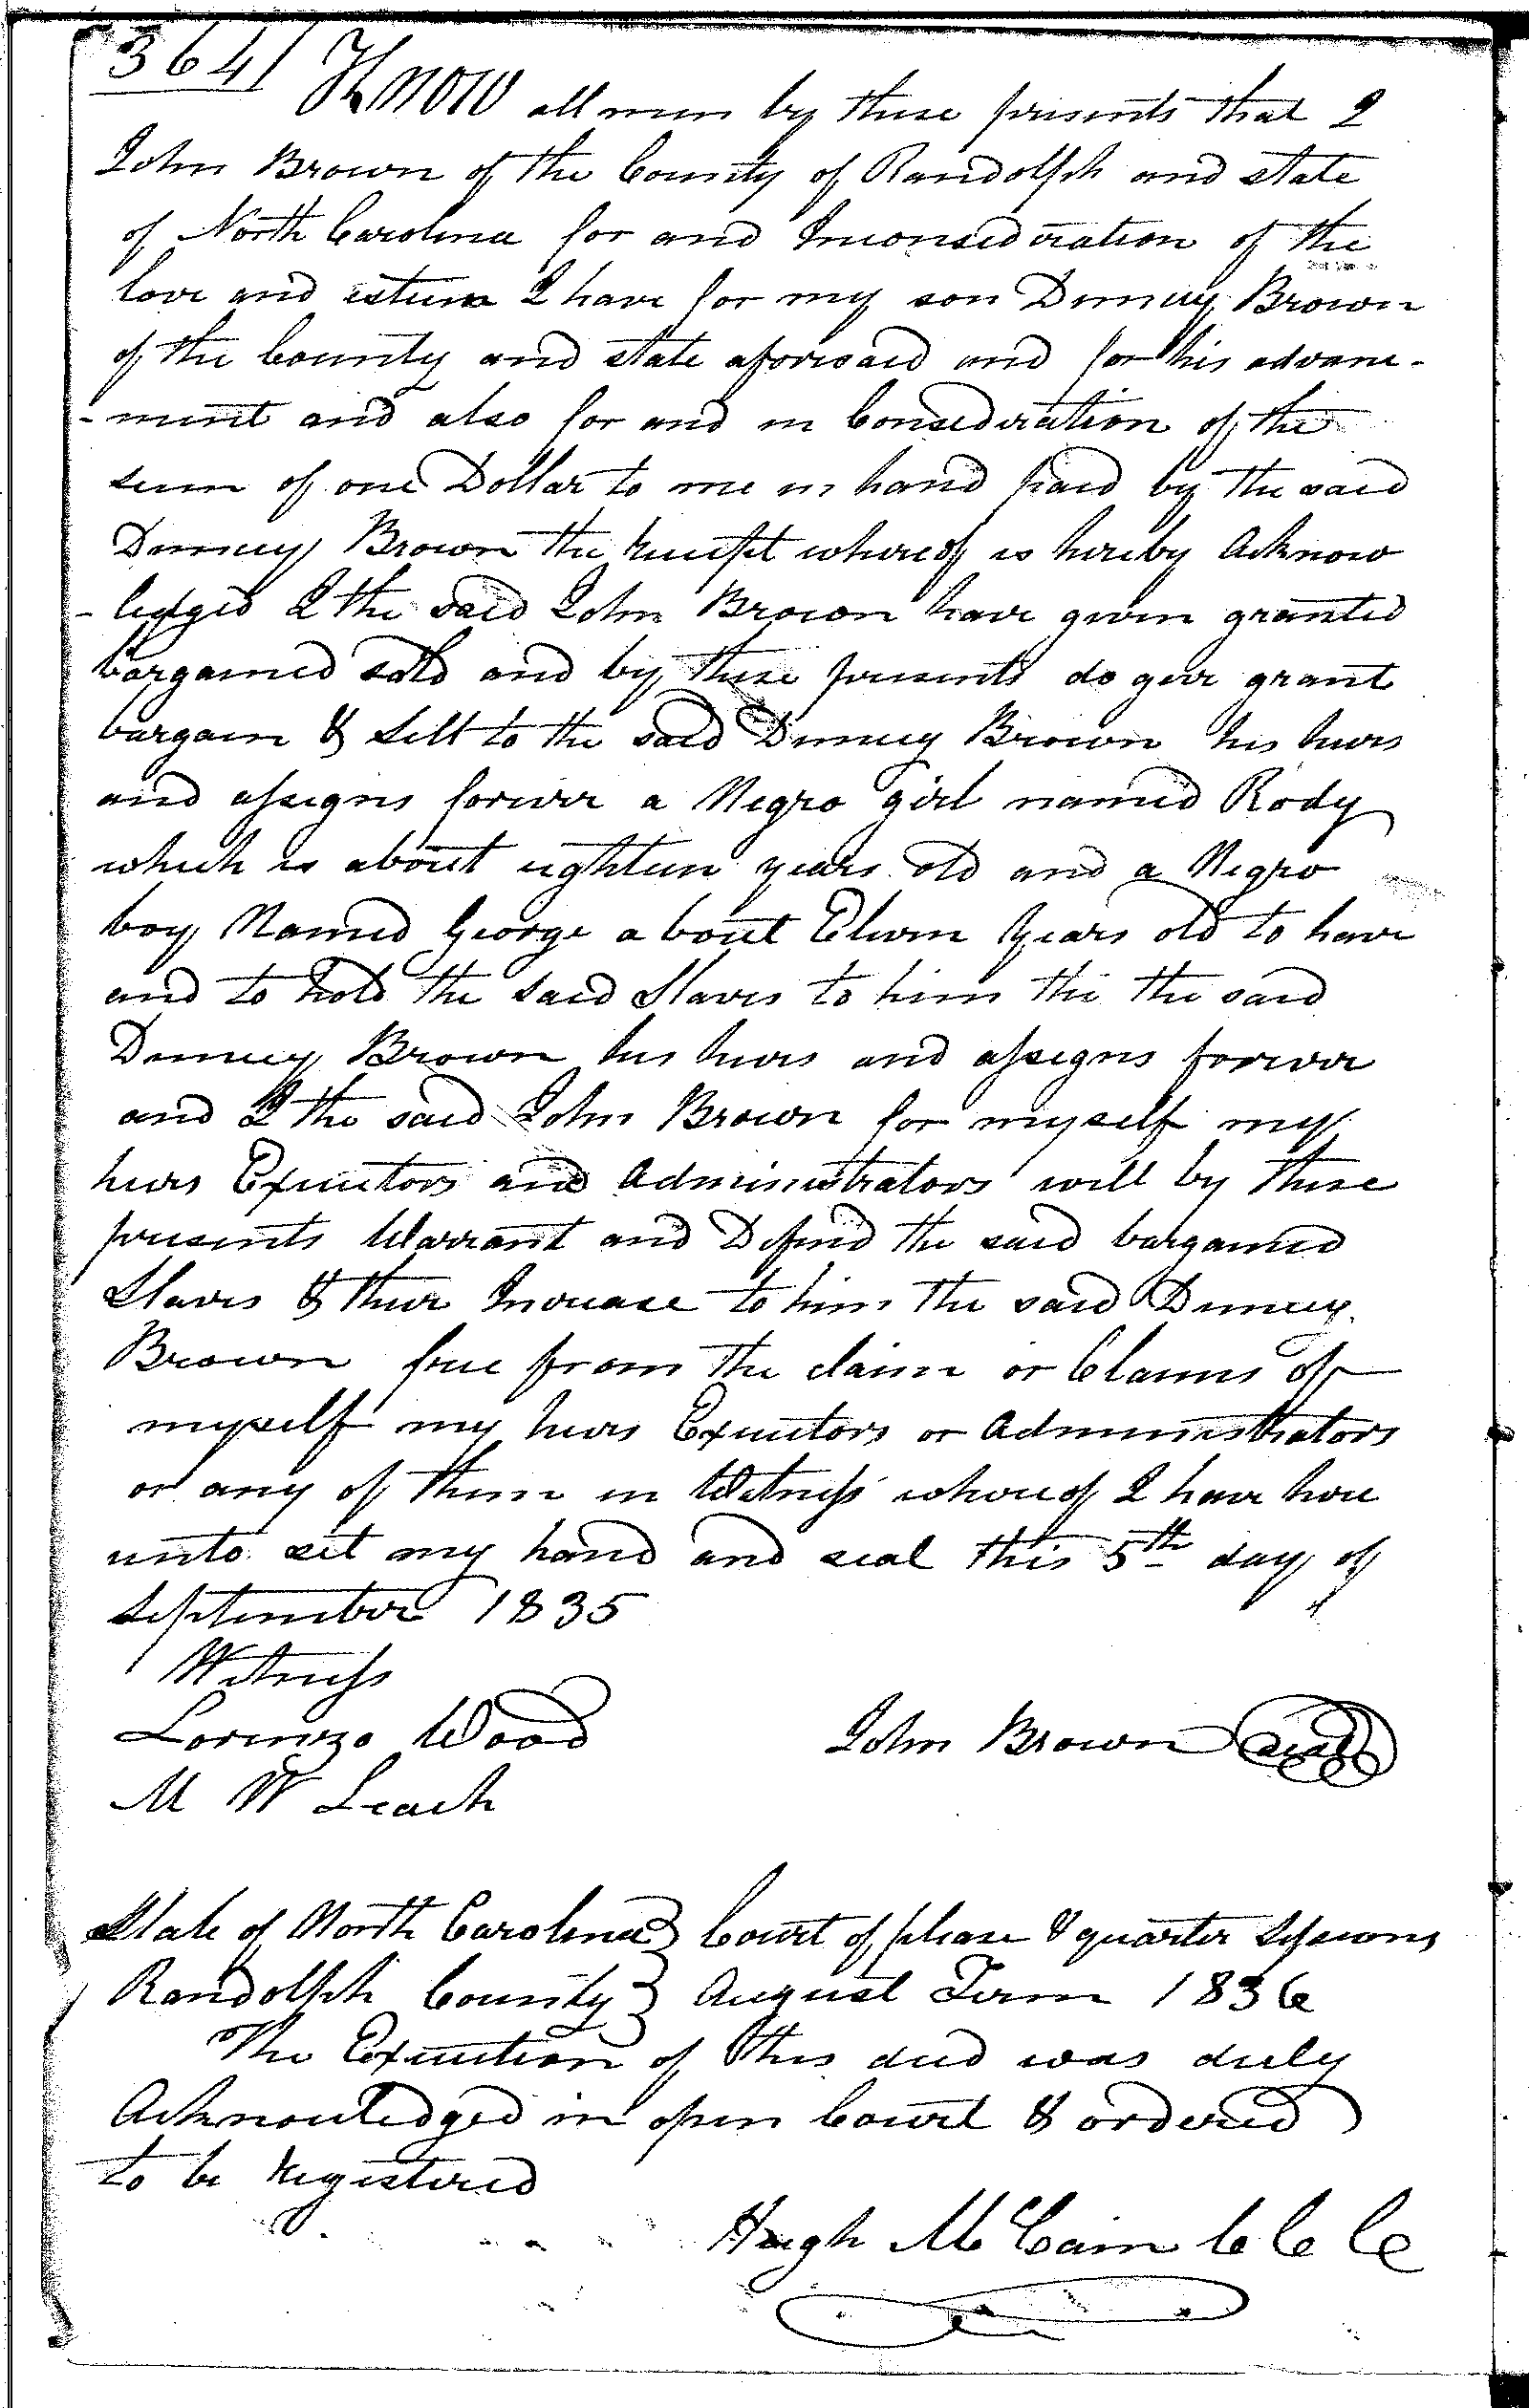 364
Know all men by these presents that I
John Brown of the County of Randolph and state
of North Carolina for and Inconsederation of the
love and esteem I have for my son Demcey Brown
of the County and state aforesaid and for his advanc-
-ment and also for and in Consederation of the
sum of one Dollar to me in hand paid by the said
Demcey Brown the receipt whereof is hereby Acknow
-ledged I the said John Brown have given granted
bargained sold and by these presents do give grant
bargain & sell to the said Demcey Brown his heirs
and assigns forever a Negro girl named Rody
which is about eighteen years old and a Negro
boy Named George about Eleven Years old to have
and to hold the said Slaves to him the the said
Demcey Brown his heirs and assigns forever
and I the said John Brown for myself my
heirs Executors and Administrators will by these
presents Warrant and Defend the said bargained
Slaves & their Increase to him the said Demcey
Brown free from the claim or Claims of
myself my heirs Executors or Administrators
or any of them in Witness whereof I have here
unto set my hand and seal this 5th day of
September 1835
Witness
Lorenzo Wood John Brown seal
M W Leach
State of North Carolina } Court of please & quarter Sessions
Randolph County } August Term 1836
The Execution of this deed was duly
Acknowledged in open Court & ordered
to be registered
Hugh McCain C C C